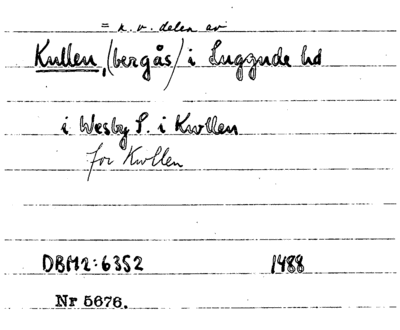 = n. v. delen av
Kullen, (bergås) i Luggude hd
i Wesby S. i Kwllen
for Kwllen
DBM2:6352 1488
Nr 5676.